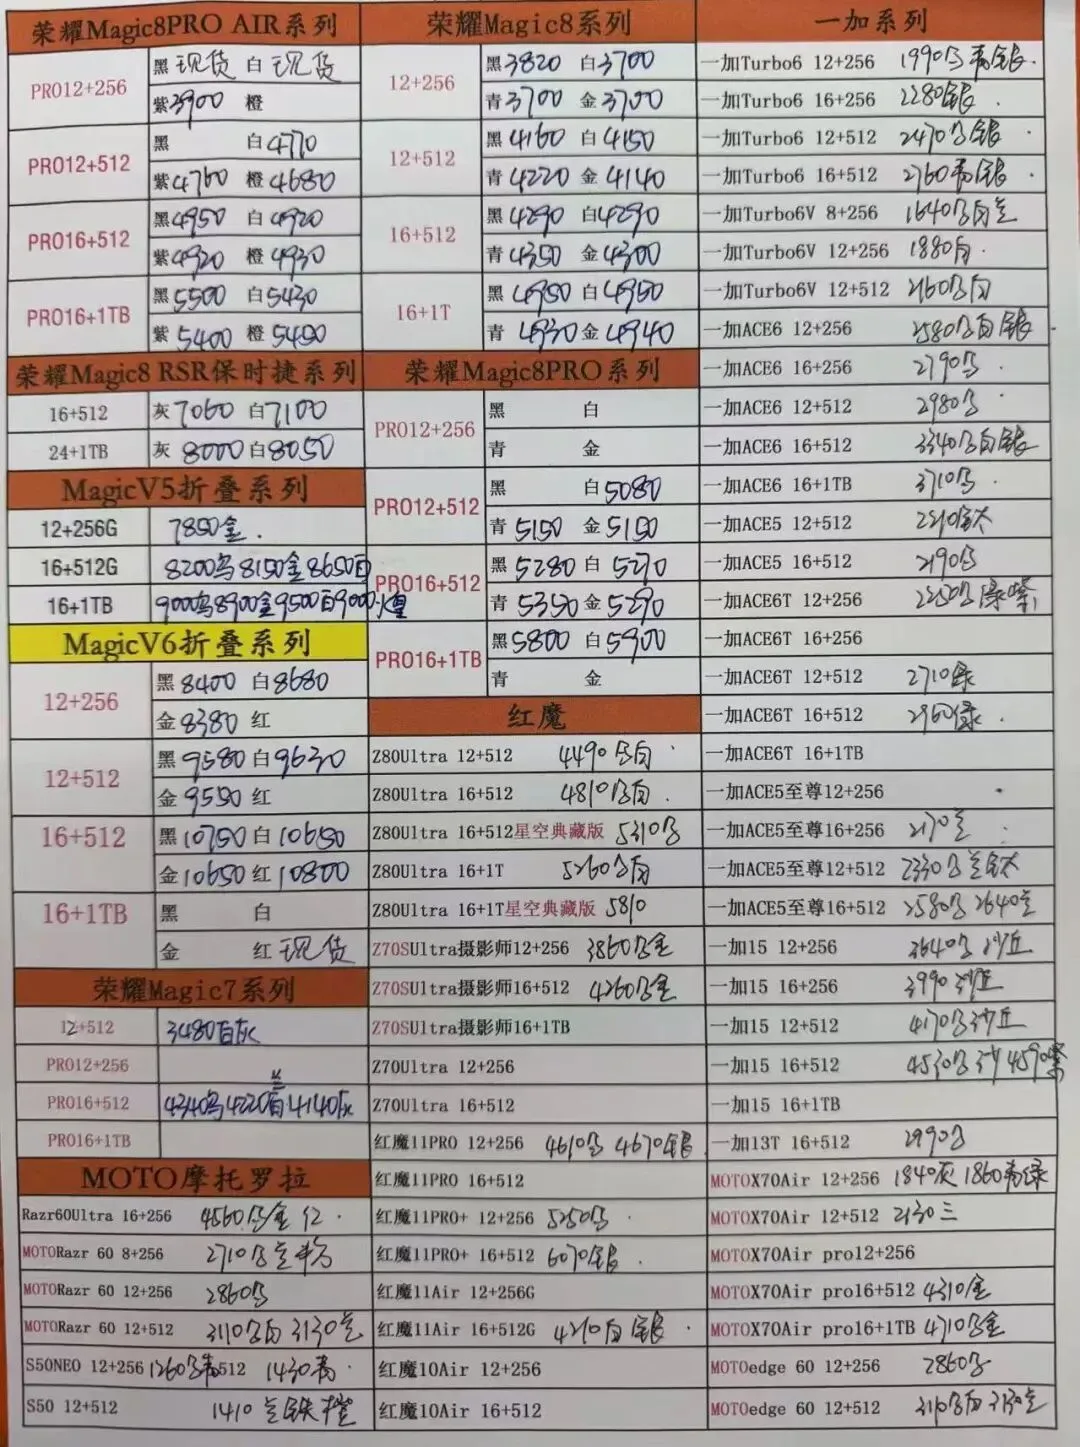 荣耀Magic8PRO AIR系列
PRO12+256 黑 现货 白 现货
紫3900 橙
PRO12+512 黑 白4770
紫4760 橙4680
PRO16+512 黑4950 白4920
紫4920 橙4930
PRO16+1TB 黑5500 白5430
紫5400 橙5400
荣耀Magic8 RSR保时捷系列
16+512 灰7060 白7100
24+1TB 灰8000 白8050
MagicV5折叠系列
12+256G 7850金.
16+512G 8200乌 8150金 8650白
16+1TB 9000乌 8900金 9500白 9000
MagicV6折叠系列
12+256 黑8400 白8680
金8380 红
12+512 黑9580 白9630
金9550 红
16+512 黑10750 白10650
金10650 红10800
16+1TB 黑 白
金 红 现货
荣耀Magic7系列
12+512 3480白灰
PRO12+256
PRO16+512 4340乌 4220白 兰 4140灰
PRO16+1TB
MOTO摩托罗拉
Razr60Ultra 16+256 4560乌金红.
MOTORazr 60 8+256 2710乌兰粉
MOTORazr 60 12+256 2860乌
MOTORazr 60 12+512 3110乌白 3130兰
S50NEO 12+256 1260乌青 512 1430青.
S50 12+512 1410兰铁橙
荣耀Magic8系列
12+256 黑3820 白3700
青3700 金3700
12+512 黑4160 白4150
青4220 金4140
16+512 黑4290 白4290
青4350 金4300
16+1T 黑4950 白4950
青4930 金4940
荣耀Magic8PRO系列
PRO12+256 黑 白
青 金
PRO12+512 黑 白5080
青5150 金5150
PRO16+512 黑5280 白5270
青5350 金5290
PRO16+1TB 黑5800 白5900
青 金
红魔
Z80Ultra 12+512 4490乌白.
Z80Ultra 16+512 4810乌白.
Z80Ultra 16+512星空典藏版 5310乌
Z80Ultra 16+1T 5260乌白
Z80Ultra 16+1T星空典藏版 5810
Z70SUltra摄影师12+256 3860乌金
Z70SUltra摄影师16+512 4260乌金
Z70SUltra摄影师16+1TB
Z70Ultra 12+256
Z70Ultra 16+512
红魔11PRO 12+256 4610乌 4670银
红魔11PRO 16+512
红魔11PRO+ 12+256 5250乌.
红魔11PRO+ 16+512 6070银.
红魔11Air 12+256G
红魔11Air 16+512G 4210白银.
红魔10Air 12+256
红魔10Air 16+512
一加系列
一加Turbo6 12+256 1990乌青银.
一加Turbo6 16+256 2280银.
一加Turbo6 12+512 2470乌银
一加Turbo6 16+512 2760青银.
一加Turbo6V 8+256 1640乌白兰
一加Turbo6V 12+256 1880白.
一加Turbo6V 12+512 2160乌白
一加ACE6 12+256 2580乌白银
一加ACE6 16+256 2790乌.
一加ACE6 12+512 2980乌.
一加ACE6 16+512 3340乌白银
一加ACE6 16+1TB 3710乌.
一加ACE5 12+512 钛
一加ACE5 16+512 2190乌
一加ACE6T 12+256 乌绿紫
一加ACE6T 16+256
一加ACE6T 12+512 2710绿
一加ACE6T 16+512 2960绿.
一加ACE6T 16+1TB
一加ACE5至尊12+256
一加ACE5至尊16+256 2170兰.
一加ACE5至尊12+512 2330乌兰钛
一加ACE5至尊16+512 2580乌 2640兰
一加15 12+256 3640乌沙丘
一加15 16+256 3990沙丘
一加15 12+512 4170乌沙丘
一加15 16+512 4530乌沙 4590紫
一加15 16+1TB
一加13T 16+512 2990乌
MOTOX70Air 12+256 1840灰 1860青绿
MOTOX70Air 12+512 2130三
MOTOX70Air pro12+256
MOTOX70Air pro16+512 4310金
MOTOX70Air pro16+1TB 4710乌金
MOTOedge 60 12+256 2860乌
MOTOedge 60 12+512 3110乌白 3130兰